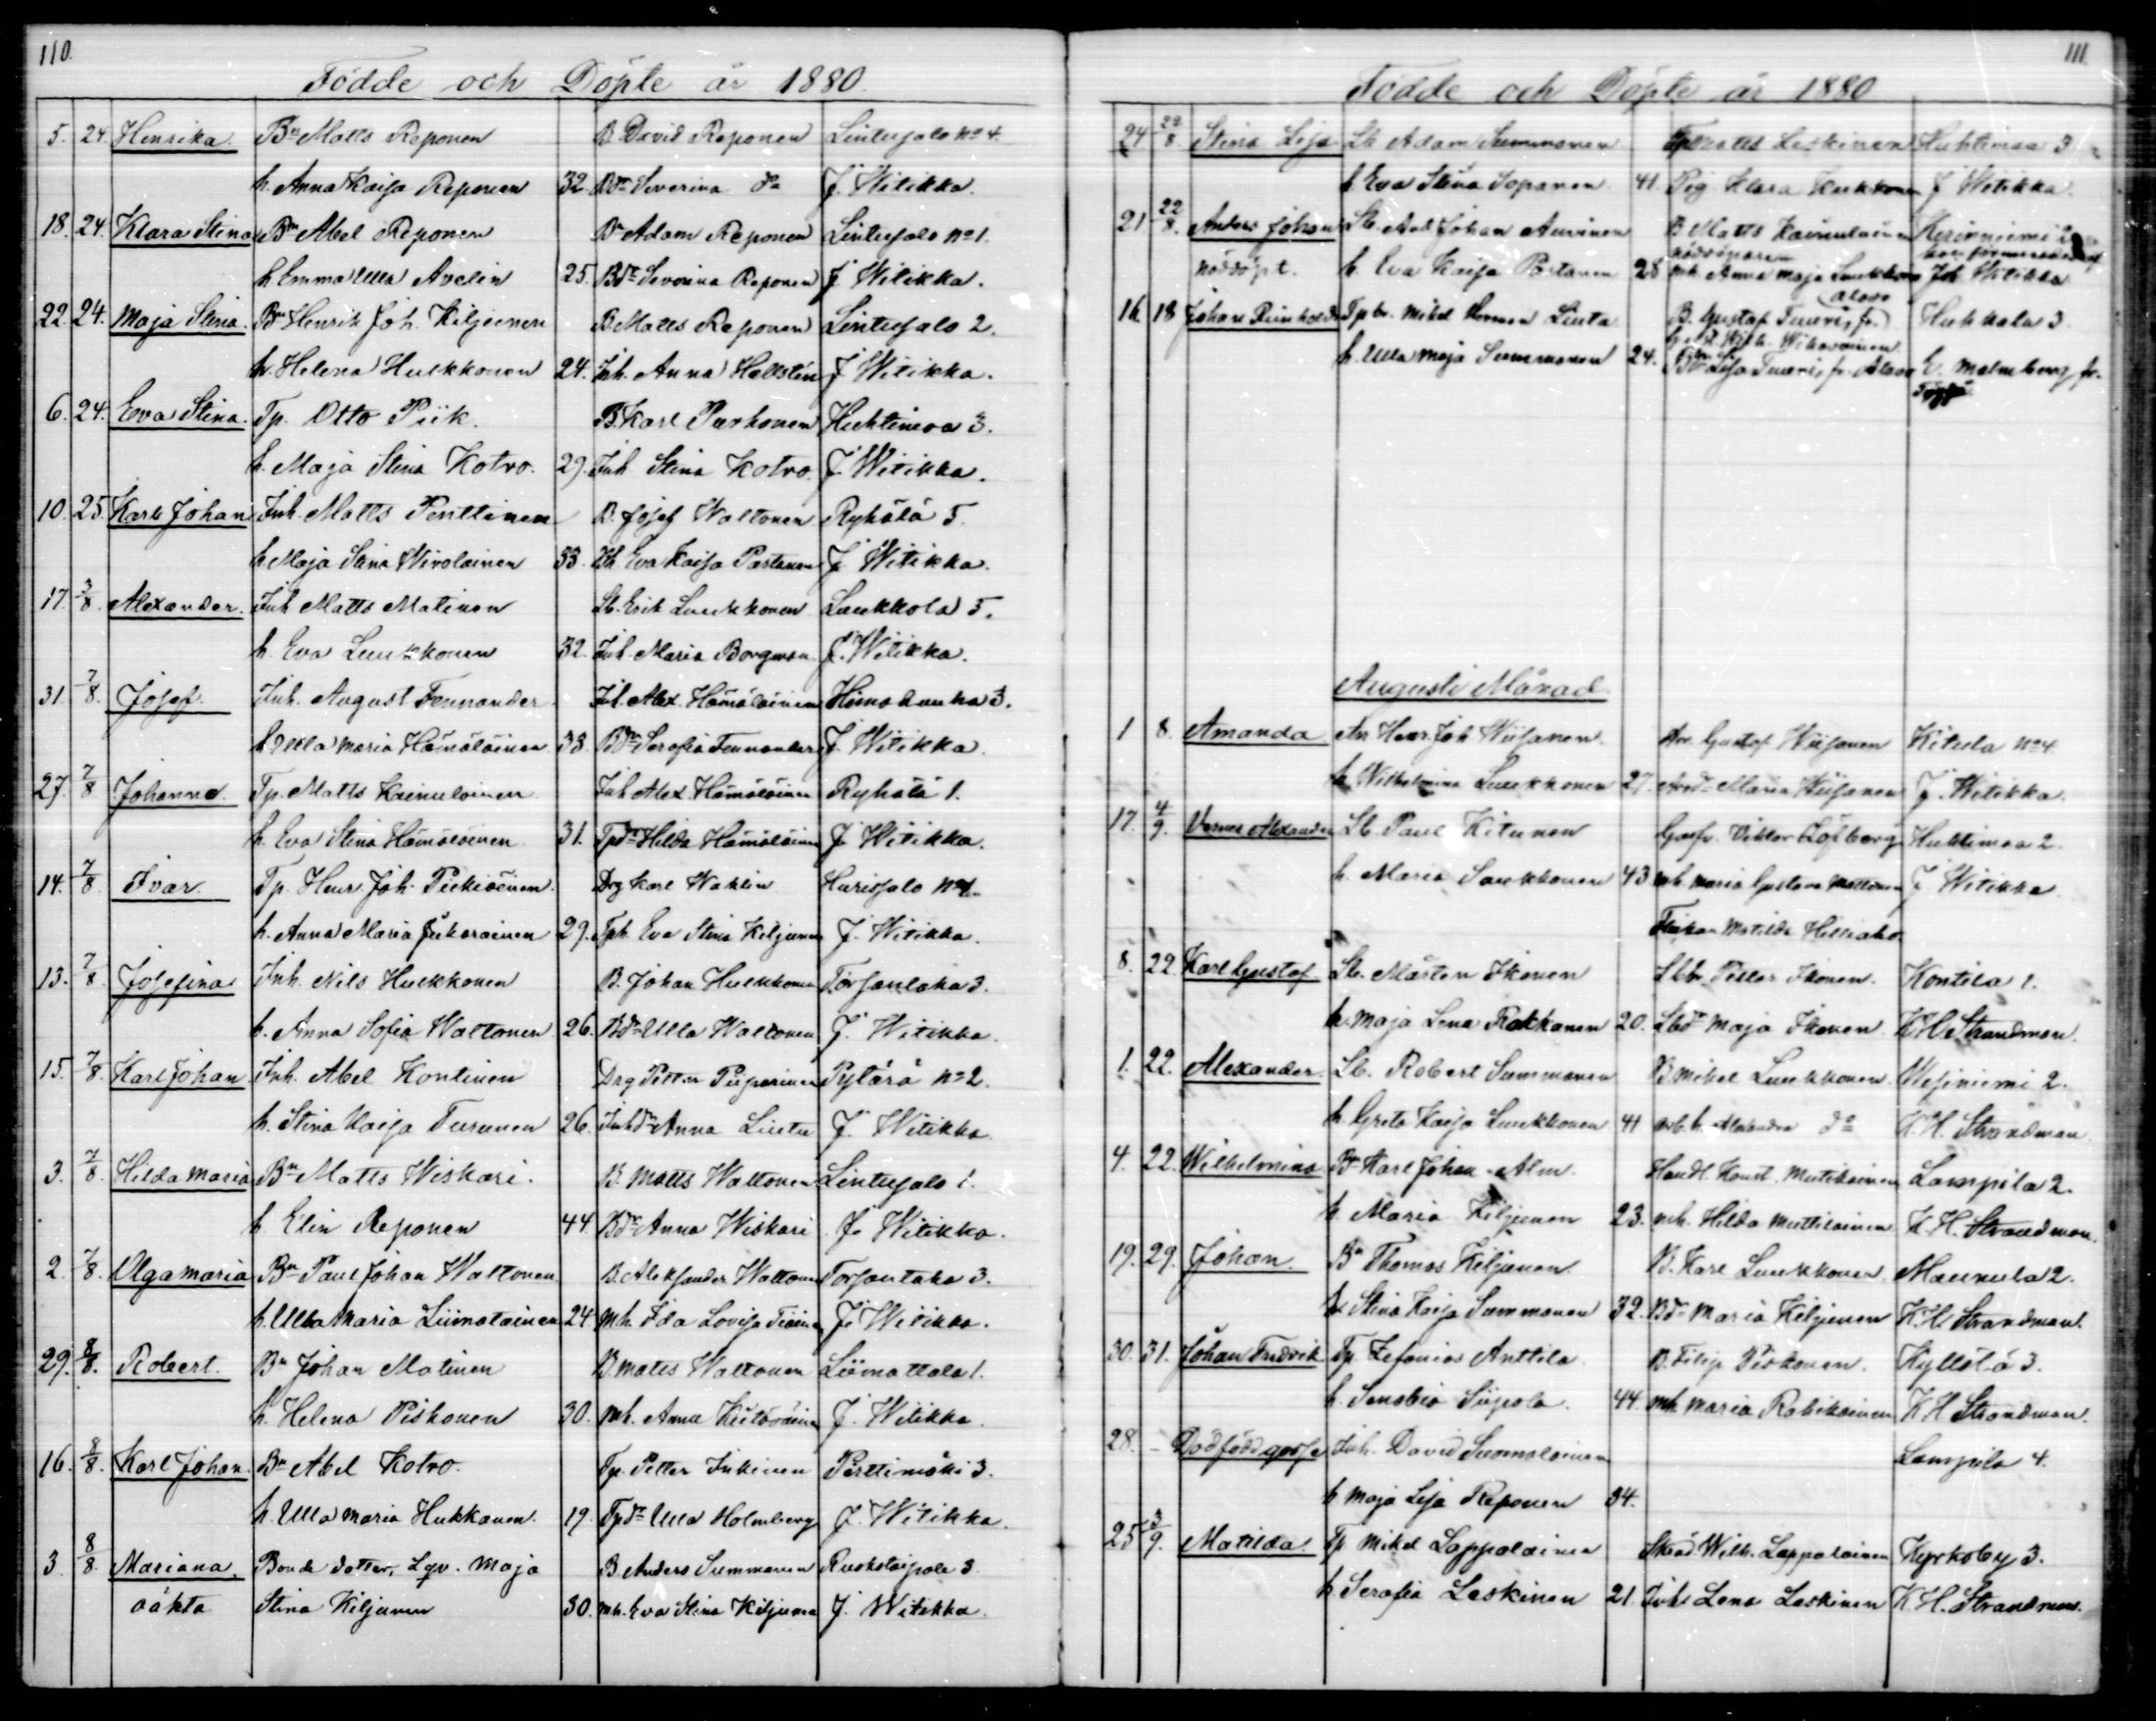 110.
Födde och Döpte år 1880.
5. 24. Henrika. Bn Matts Reponen B. David Reponen Lintusalo No 4.
h. Anna Kaisa Reponen 32. Bdr Severina do J. Witikka.
18. 24. Klara Stina Bn Abel Reponen Bn Adam Reponen Lintusalo No 1.
h. Emma Ulla Avelin 25. Bdr Severina Reponen J. Witikka.
22. 24. Maja Stina. Bn Henrik Joh. Kiljunen B. Matts Reponen Lintusalo 2.
h. Helena Hukkonen 24. Inh. Anna Hallstén J. Witikka.
6. 24. Eva Stina. Tp. Otto Piik. B. Karl Parkonen Huhtimaa 3.
h. Maja Stina Kotro. 29. Inh Stina Kotro. J. Witikka.
10. 25. Karl Johan Inh. Matts Penttinen B. Josef Waltonen Ryhälä 5.
h. Maja Stina Wirolainen 33. Bh. Eva Kaisa Partanen J. Witikka.
17. 3/8. Alexander. Inh Matts Matinen Lb. Erik Luukkonen Luukkola 5.
h. Eva Luukkonen 32. Inh. Maria Borgman J. Witikka.
31. 7/8. Josef. Inh. August Fennander Inh. Alex. Hämäläinen Himahanka 3.
h. Ulla Maria Hämäläinen 38. Bdr Serafia Fennander J. Witikka.
27. 7/8 Johanna. Tp. Matts Kainulainen Inh Alex Hämäläinen Ryhälä 1.
h. Eva Stina Hämäläinen 31. Tpdr Hilda Hämäläinen J. Witikka.
14. 7/8. Ivar. Tp. Henr. Joh. Drg Karl Wahlin
h. Anna Maria 29. Tph. Eva Stina Kiljunen J. Witikka.
13. 7/8. Josefina Inh. Nils Hukkonen B. Johan Hukkonen 3.
h. Anna Sofia Waltonen 26. Bdr Ulla Waltonen J. Witikka.
15. 7/8. Karl Johan Inh. Abel Kontinen Drg Petter No 2.
h. Stina Kaisa Turunen 26. Inhdr Anna Lintu J. Witikka.
3. 7/8. Hilda Maria Bn Matts Wiskari. B. Matts Waltonen Lintusalo 1.
h Elin Reponen 44. Bdr Anna Wiskari J. Witikka.
2. 7/8. Olga Maria Bn Paul Johan Waltonen B. Aleksander Waltonen 3.
h. Ulla Maria Liimatainen 24. mh. Ida Lovisa J. Witikka.
29. 8/8. Robert. Bn Johan Matinen B. Matts Waltonen Liimattala 1.
h. Helena Piskonen 30. mh. Anna J. Witikka.
16. 8/8. Karl Johan. Bn Abel Kotro. Tp. Petter Inkinen Perttimäki 3.
h. Ulla Maria Hukkanen. 19. Tpdr Ulla Holmberg J. Witikka.
3 8/8 Mariana, Bonde dotter, Lqv. Maja B. Anders Summanen 3
oäkta Stina Kiljunen 30. mh. Eva Stina Kiljunen J. Witikka.
111
Födde och Döpte år 1880
24 22/8. Stina Lisa Lb Adam Summanen Matts Leskinen Huhtimaa 3
h Eva Stina Sopanen 41. Pig. Klara Kukkonen J. Witikka.
21 22/8. Anders Johan Lb. And. Johan Auvinen B. Matts Kainulainen
nöddöpt. h. Eva Kaisa Partanen 28 mh. Anna Maja Luukkonen Joh. Witikka
16. 18 Johan Reinhold Tpbr. Mikel Herman Lintu B. Gustaf Tuuri, fr. Alavo Hukkala 3.
h. Ulla Maja Summanen 24. Lisa Tuuri, fr. Alavo E. Malmberg, fr.
Augusti Månad.
1 8. Amanda An Henr. Joh Wiisanen Gustaf Wiisanen Kitula No 4
h. Wilhelmina Luukkonen 27. Maria Wiisanen J. Witikka.
17. 4/9. Verner Alexander Lb. Paul Kitunen Garfv. Viktor Löfberg Huhtimaa 2.
h. Maria Saukkonen 43 mh. Maria Gustava J. Witikka
Matilda
8. 22. Karl Gustaf Lb. Mårten Ikonen Lbbr. Petter Ikonen. Kontila 1.
h. Maja Lena Rokkanen 20. Lbdr Maja Ikonen K. H. Strandman.
1. 22. Alexander. Lb. Robert Summanen B. Mikel Luukkonen Wesiniemi 2.
h. Greta Kaisa Luukkonen 41 h. do K. H. Strandman
4. 22. Wilhelmina Bn Karl Johan Alm. Handl. Konst. Lampila 2.
h. Maria Kiljunen 23. mh. Hilda K. H. Strandman.
19. 29. Johan. Bn Thomas Kiljunen. B. Karl Luukkonen. Maunula 2.
h. Stina Kaisa Summanen 32. Bdr Maria Kiljunen K. H. Strandman.
30. 31. Johan Fredrik Tp Zefanias Anttila. B. Filip Piskonen. Kyllölä 3.
h. Senobia Siipola. 44. mh. Maria K. H. Strandman.
28. – Dödfödd gosse Inh. David Suomalainen Lampila 4.
h Maja Lisa Reponen 34.
25 3/9. Matilda Tp Mikel Lappalainen Wilh. Lappalainen Kyrkoby 3.
h Serafia Leskinen 21. Lena Leskinen K. H. Strandman.